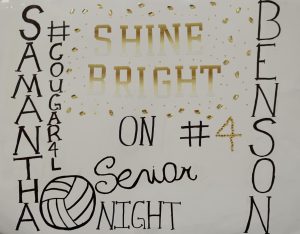 SAMANTHA
#COUGAR4L
SHINE
BRIGHT
ON #4
Senior
NIGHT
BENSON